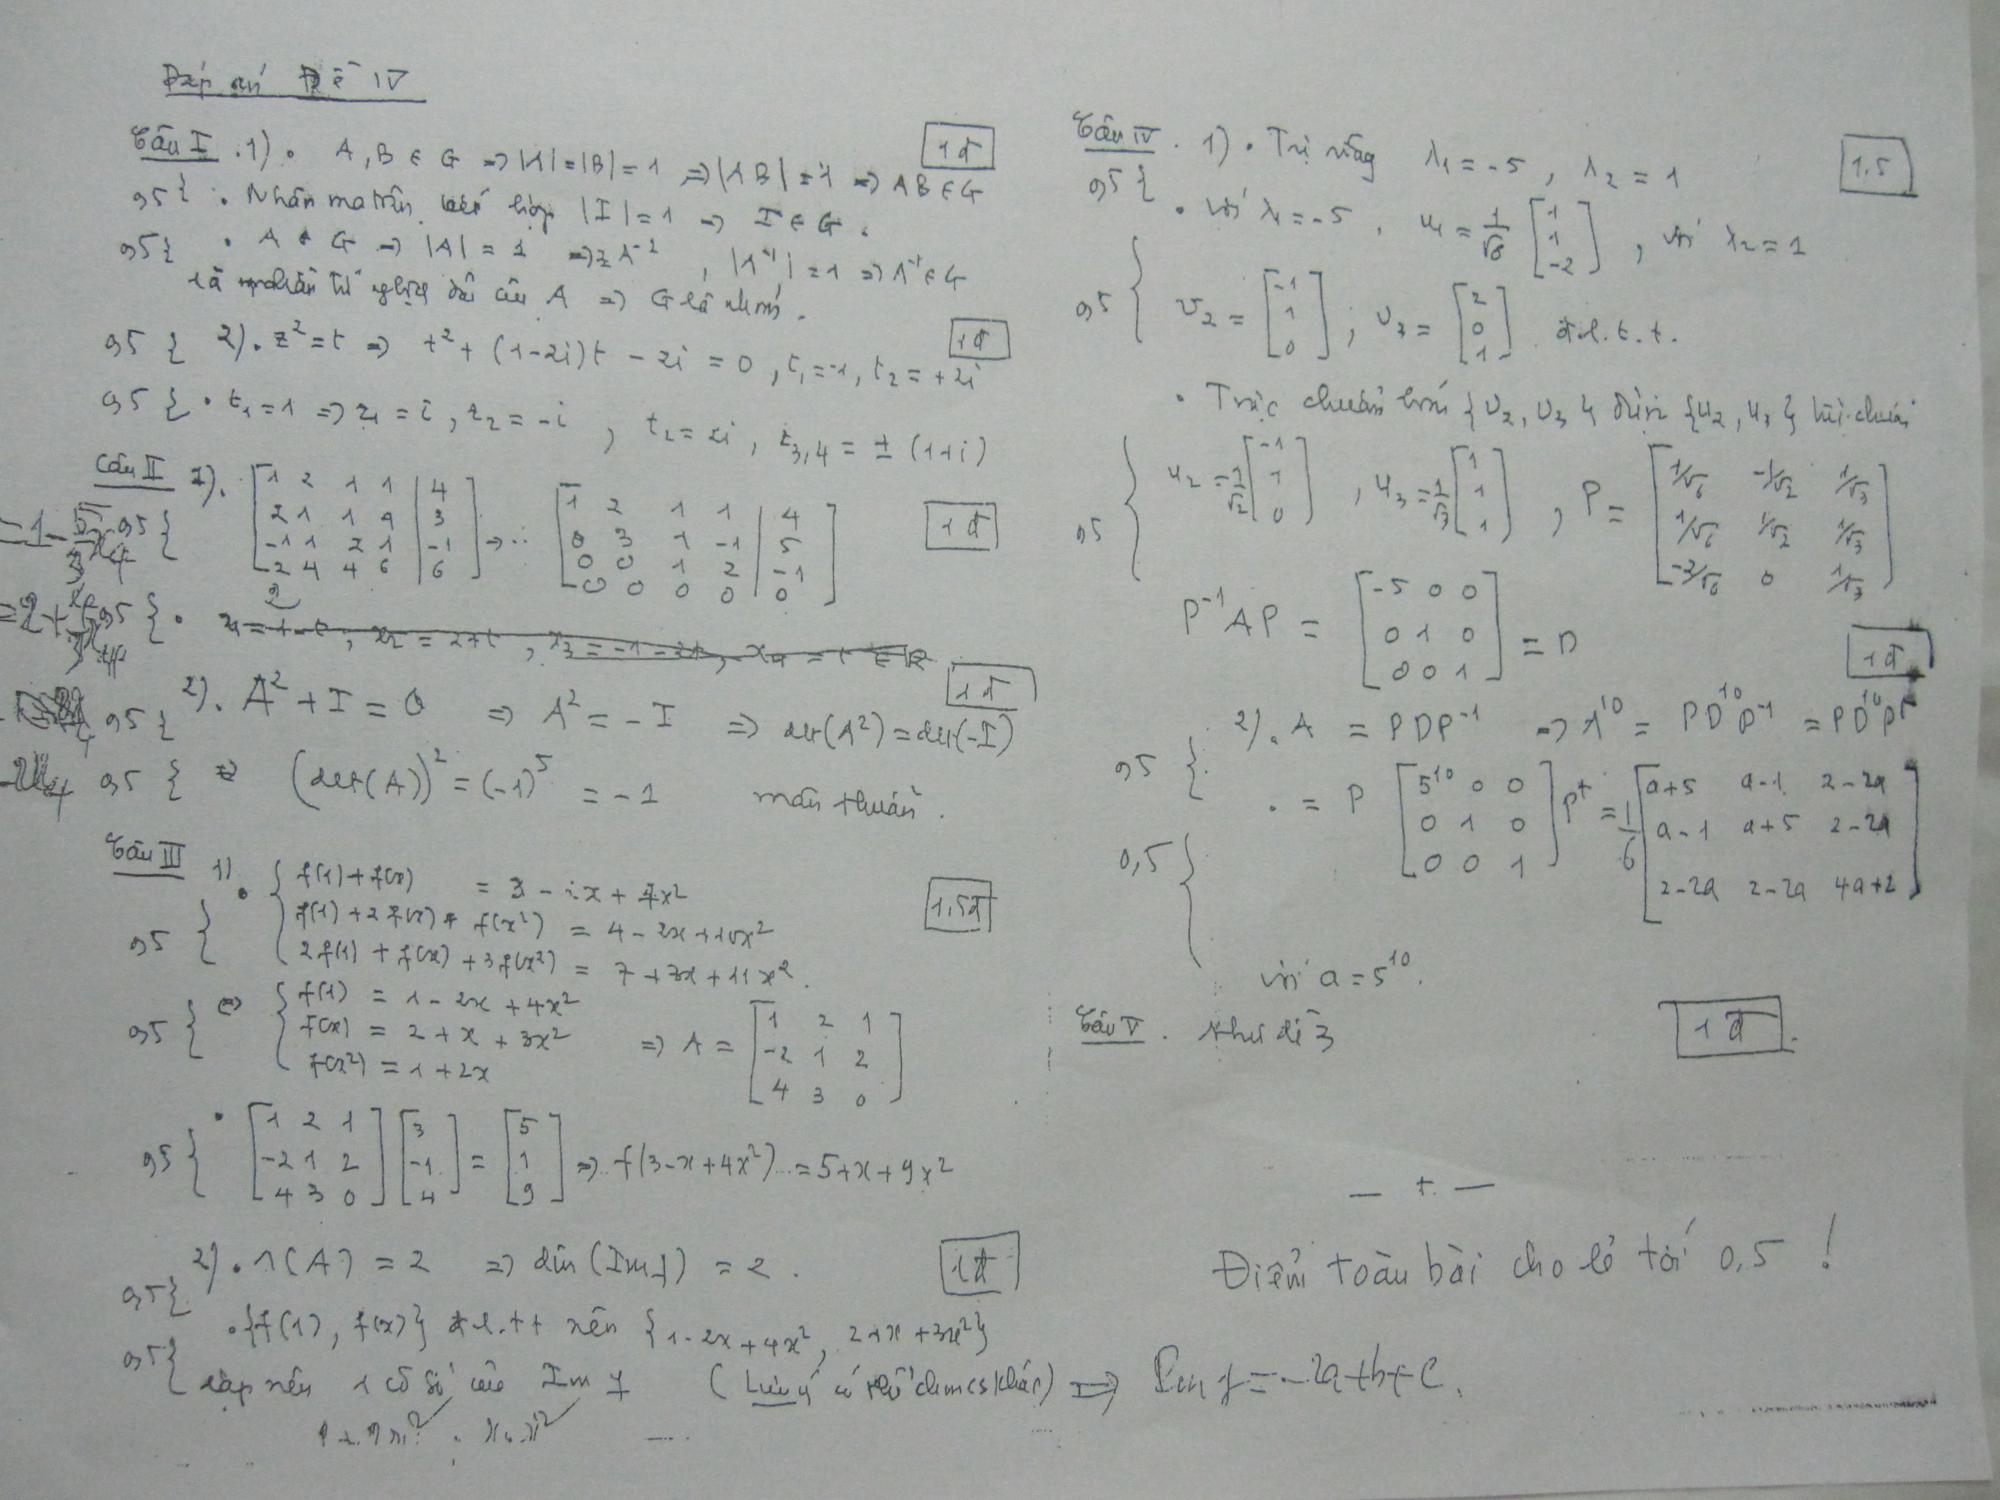 Đáp án Đề IV
Câu I .1) . A, B ∈ G => |A| = |B| = 1 => |AB| = 1 => AB ∈ G
1đ
0,5 { . Nhân ma trận kết hợp |I| = 1 => I ∈ G.
0,5 { . A ∈ G => |A| = 1 => ∃ A⁻¹, |A⁻¹| = 1 => A⁻¹ ∈ G
là phần tử nghịch đảo của A => G là nhóm.
0,5 { 2). z² = t => t² + (1-2i)t - 2i = 0, t₁ = -1, t₂ = +2i
1đ
0,5 { . t₁ = 1 => z₁ = i, z₂ = -i, t₂ = 2i, z₃,₄ = ± (1+i)
Câu II 1). [1 2 1 1 | 4] → .. [1 2 1 1 | 4]
[2 1 1 4 | 3] [0 3 1 -1 | 5]
[-1 1 2 1 | -1] [0 0 1 2 | -1]
[2 4 4 6 | 6] [0 0 0 0 | 0]
0,5 {
1đ
0,5 { . x₁ = 1-t; x₂ = 2+t, x₃ = -1-2t, x₄ = t ∈ R
0,5 { 2). A² + I = 0 => A² = -I => det(A²) = det(-I)
1đ
0,5 { => (det(A))² = (-1)⁵ = -1 mâu thuẫn.
Câu III 1) . { f(1) + f(x) = 3 - x + 7x²
1,5đ
0,5 { f(1) + 2f(x) + f(x²) = 4 - 2x + 10x²
2f(1) + f(x) + 3f(x²) = 7 + 3x + 11x².
0,5 { <=> { f(1) = 1 - 2x + 4x²
f(x) = 2 + x + 3x²
f(x²) = 1 + 2x
=> A = [1 2 1]
[-2 1 2]
[4 3 0]
0,5 { . [1 2 1] [3] = [5]
[-2 1 2] [-1] [1] => f(3-x+4x²) = 5+x+9x²
[4 3 0] [4] [9]
0,5 { 2). r(A) = 2 => dim(Imf) = 2.
1đ
. {f(1), f(x)} đ.l.t.t nên {1-2x+4x², 2+x+3x²}
0,5 { lập nên 1 cơ sở của Im f (Lưu ý có thể chọn cs khác)
Câu IV . 1) . Trị riêng λ₁ = -5, λ₂ = 1
1,5
0,5 { . Với λ₁ = -5, u₁ = 1/√6 [1 1 -2], với λ₂ = 1
0,5 { v₂ = [-1 1 0]; v₃ = [2 0 1] đ.l.t.t.
. Trực chuẩn hoá {v₂, v₃} được {u₂, u₃} trực chuẩn
0,5 { u₂ = 1/√2 [-1 1 0], u₃ = 1/√3 [1 1 1], P = [1/√6 -1/√2 1/√3]
[1/√6 1/√2 1/√3]
[-2/√6 0 1/√3]
P⁻¹AP = [-5 0 0]
[0 1 0] = D
[0 0 1]
1đ
2). A = PDP⁻¹ => A¹⁰ = PD¹⁰P⁻¹ = PD¹⁰Pᵗ
0,5 { . = P [5¹⁰ 0 0] Pᵗ = 1/6 [a+5 a-1 2-2a]
[0 1 0] [a-1 a+5 2-2a]
[0 0 1] [2-2a 2-2a 4a+2]
0,5 {
với a = 5¹⁰.
Câu V . Như đề 3
1đ
— + —
Điểm toàn bài cho lẻ tới 0,5 !